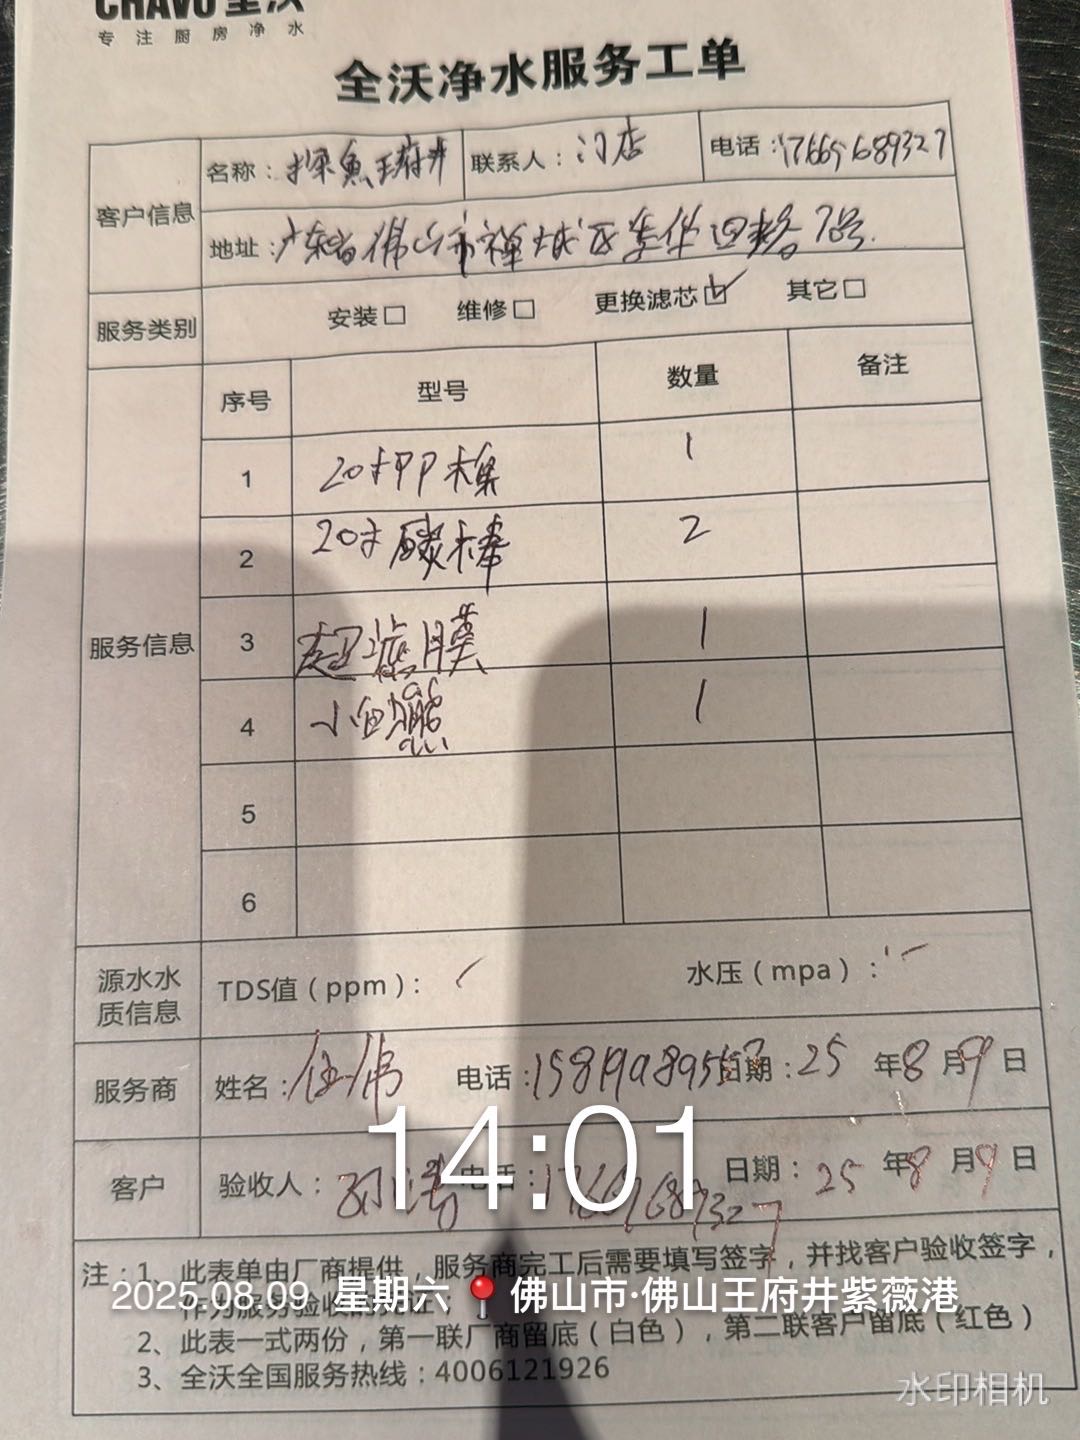 CHAVO全沃
专注厨房净水
全沃净水服务工单
客户信息
名称：探魚王府井 联系人：门店 电话：17665689327
地址：广东省佛山市禅城区季华四路78号.
服务类别 安装□ 维修□ 更换滤芯☑ 其它□
服务信息
序号 型号 数量 备注
1 20寸PP棉 1
2 20寸碳棒 2
3 超滤膜 1
4 小白 1
5
6
源水水质信息 TDS值（ppm）： 水压（mpa）：
服务商 姓名：伍伟 电话： 日期：25年8月9日
客户 验收人： 电话： 日期：25年8月9日
注：1、此表单由厂商提供，服务商完工后需要填写签字，并找客户验收签字，
作为服务验收的凭证；
2、此表一式两份，第一联厂商留底（白色），第二联客户留底（红色）
3、全沃全国服务热线：4006121926
14:01
2025.08.09 星期六 佛山市·佛山王府井紫薇港
水印相机